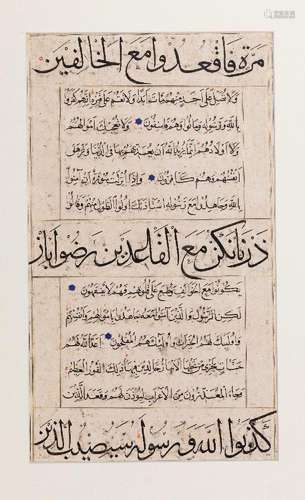 مرة فاقعدوا مع الخالفين
ولا تصل على احد منهم مات ابدا ولا تقم على قبره انهم كفروا
بالله ورسوله وماتوا وهم فاسقون ولا تعجبك اموالهم
واولادهم انما يريد الله ان يعذبهم بها في الدنيا وتزهق
انفسهم وهم كافرون واذا انزلت سورة ان آمنوا
بالله وجاهدوا مع رسوله استاذنك اولوا الطول منهم وقالوا
ذرنا نكن مع القاعدين رضوا بان
يكونوا مع الخوالف وطبع على قلوبهم فهم لا يفقهون
لكن الرسول والذين آمنوا معه جاهدوا باموالهم وانفسهم
واولئك لهم الخيرات واولئك هم المفلحون اعد الله لهم
جنات تجري من تحتها الانهار خالدين فيها ذلك الفوز العظيم
وجاء المعذرون من الاعراب ليؤذن لهم وقعد الذين
كذبوا الله ورسوله سيصيب الذين